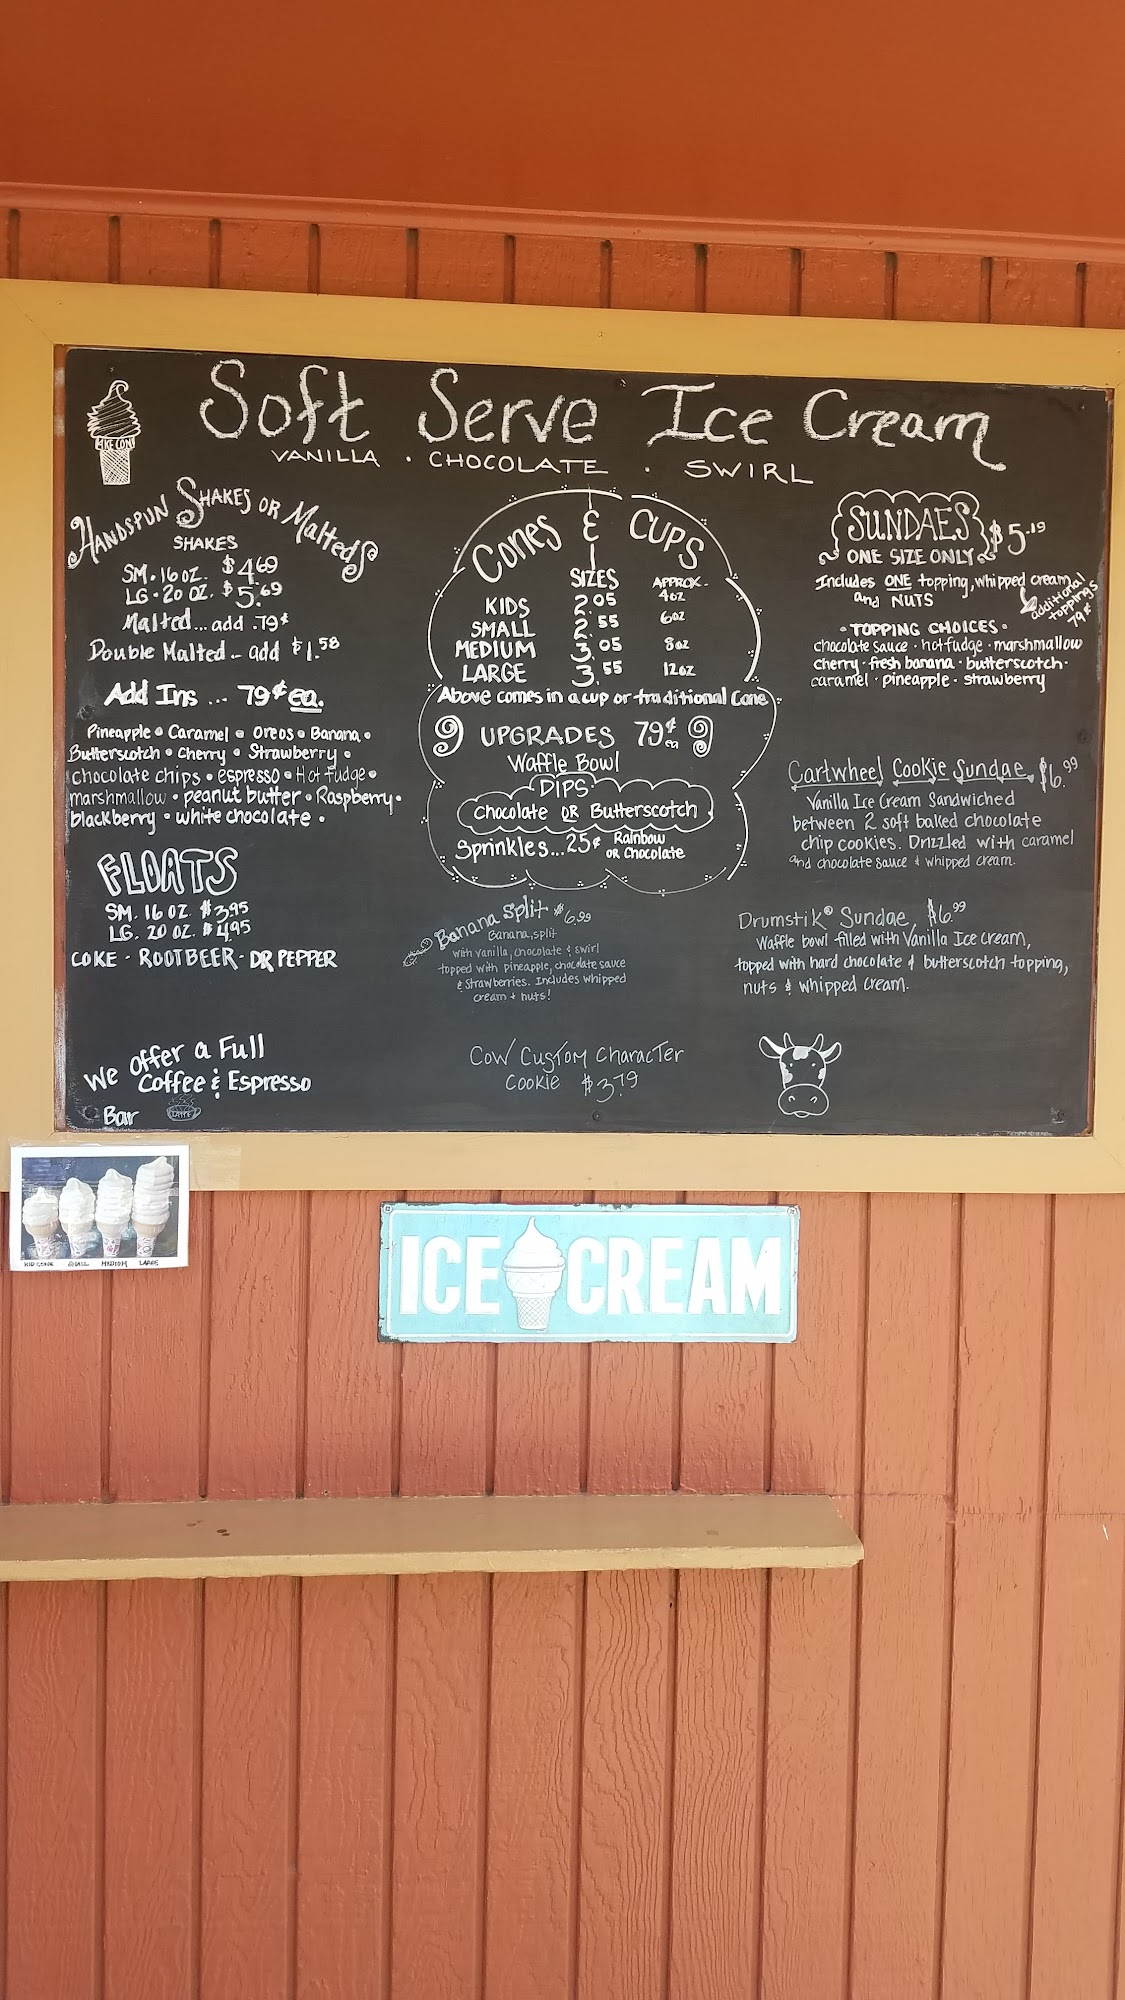 Soft Serve Ice Cream
VANILLA · CHOCOLATE · SWIRL
HANDSPUN SHAKES OR MALTEDS
SHAKES
SM. 16 OZ. $4.69
LG - 20 OZ. $5.69
Malted... add .79¢
Double Malted .. add $1.58
Add Ins ... 79¢ ea.
Pineapple • Caramel • Oreos • Banana •
Butterscotch • Cherry • Strawberry •
chocolate chips • espresso • Hot fudge •
marshmallow • peanut butter • Raspberry •
blackberry • white chocolate •
FLOATS
SM. 16 OZ. $3.95
LG. 20 OZ. $4.95
COKE - ROOTBEER - DR PEPPER
We offer a Full
Coffee & Espresso
Bar
Cones & CUPS
SIZES APPROX.
KIDS 2.05 4oz
SMALL 2.55 6oz
MEDIUM 3.05 8oz
LARGE 3.55 12oz
Above comes in a cup or traditional Cone
UPGRADES 79¢ ea
Waffle Bowl
DIPS
Chocolate OR Butterscotch
Sprinkles...25¢ Rainbow
OR Chocolate
Banana Split $6.99
Banana, split
with vanilla, chocolate & swirl
topped with pineapple, chocolate sauce
& strawberries. Includes whipped
cream + nuts!
Cow Custom Character
Cookie $3.79
SUNDAES $5.19
ONE SIZE ONLY
Includes ONE topping, whipped cream
and NUTS
additional
toppings
79¢
• TOPPING CHOICES •
chocolate sauce · hot fudge · marshmallow
cherry · fresh banana · butterscotch ·
caramel · pineapple · strawberry
Cartwheel Cookie Sundae, $6.99
Vanilla Ice Cream Sandwiched
between 2 soft baked chocolate
chip cookies. Drizzled with caramel
and chocolate sauce & whipped cream.
Drumstik® Sundae, $6.99
Waffle bowl filled with Vanilla Ice cream,
topped with hard chocolate & butterscotch topping,
nuts & whipped cream.
KID CONE SMALL MEDIUM LARGE
ICE CREAM